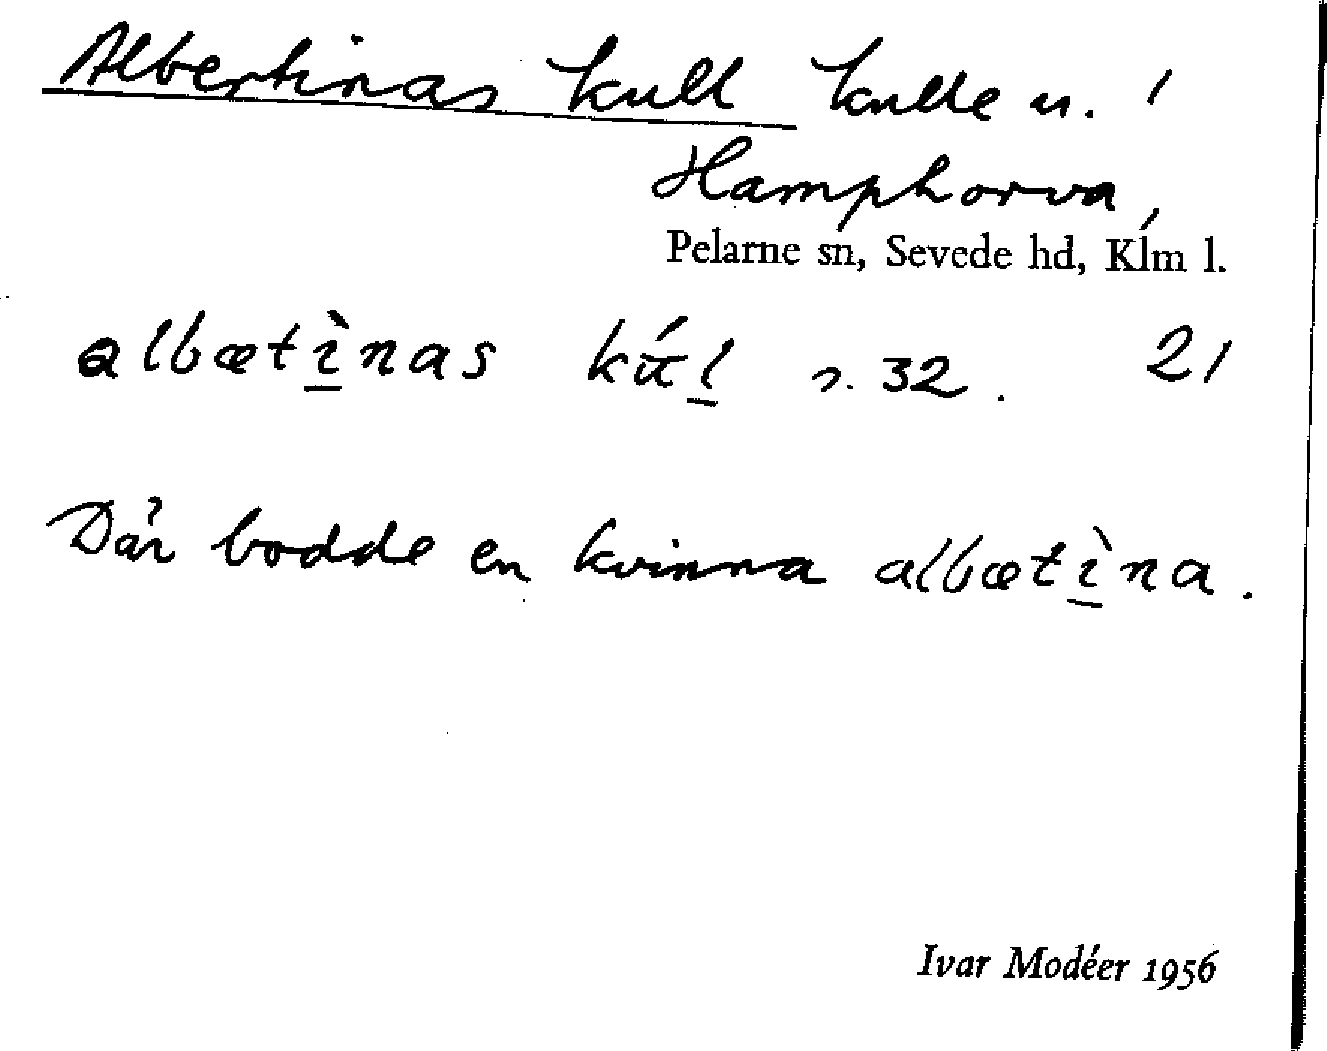 Albertinas kull kulle u. /
Hamphorva,
Pelarne sn, Sevede hd, Klm l.
albætìnas kúl s. 32. 21
Där bodde en kvinna albætìna.
Ivar Modéer 1956